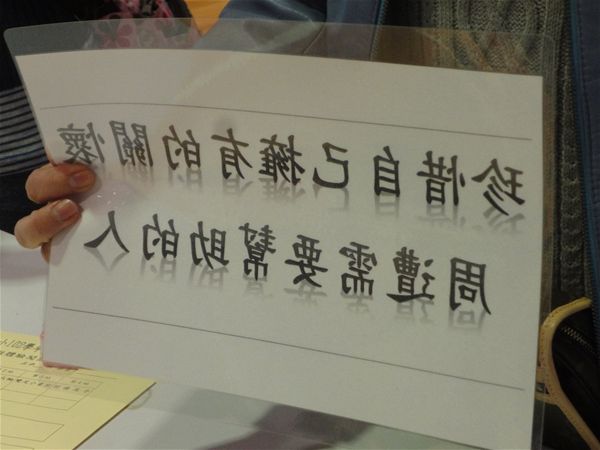 珍惜自己擁有的關懷
周遭需要幫助的人